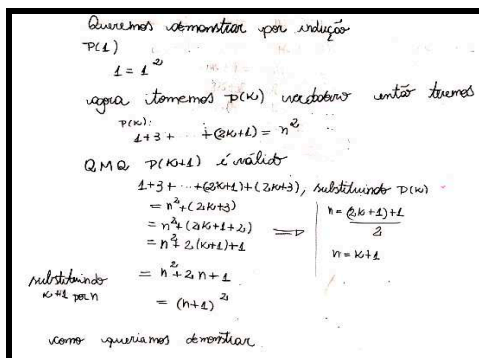 Queremos demonstrar por indução
P(1)
1 = 1²
agora tomemos P(K) verdadeiro então teremos
P(K):
1+3+ ··· +(2K+1) = n²
QMQ P(K+1) é válido
1+3+ ··· +(2K+1)+(2K+3), substituindo P(K)
= n²+(2K+3)
= n²+(2K+1+2)
= n²+2(K+1)+1
⇒ n = (2K+1)+1 / 2
n = K+1
substituindo K+1 por n
= n²+2n+1
= (n+1)²
como queriamos demonstrar